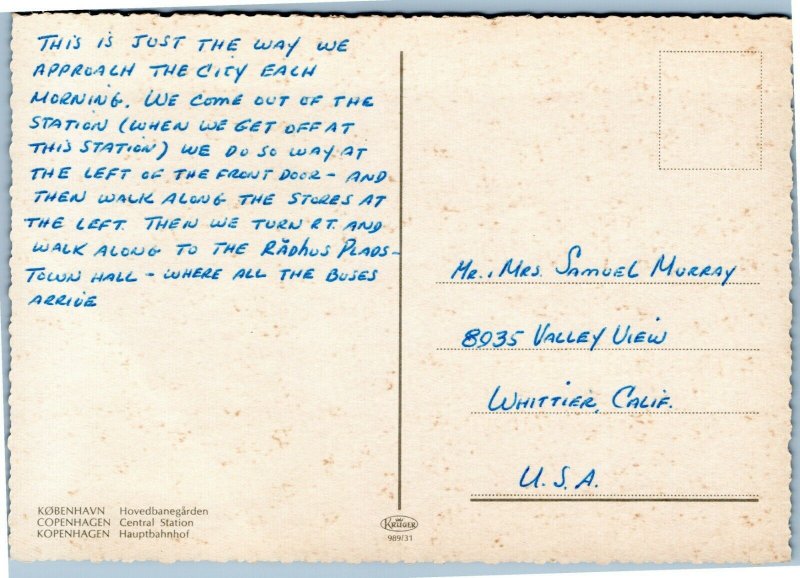 THIS IS JUST THE WAY WE
APPROACH THE CITY EACH
MORNING. WE COME OUT OF THE
STATION (WHEN WE GET OFF AT
THIS STATION) WE DO SO WAY AT
THE LEFT OF THE FRONT DOOR - AND
THEN WALK ALONG THE STORES AT
THE LEFT. THEN WE TURN RT. AND
WALK ALONG TO THE RÅDHUS PLADS -
TOWN HALL - WHERE ALL THE BUSES
ARRIVE
MR., MRS. SAMUEL MURRAY
8035 VALLEY VIEW
WHITTIER, CALIF.
U.S.A.
KØBENHAVN Hovedbanegården
COPENHAGEN Central Station
KOPENHAGEN Hauptbahnhof
KRÜGER
989/31